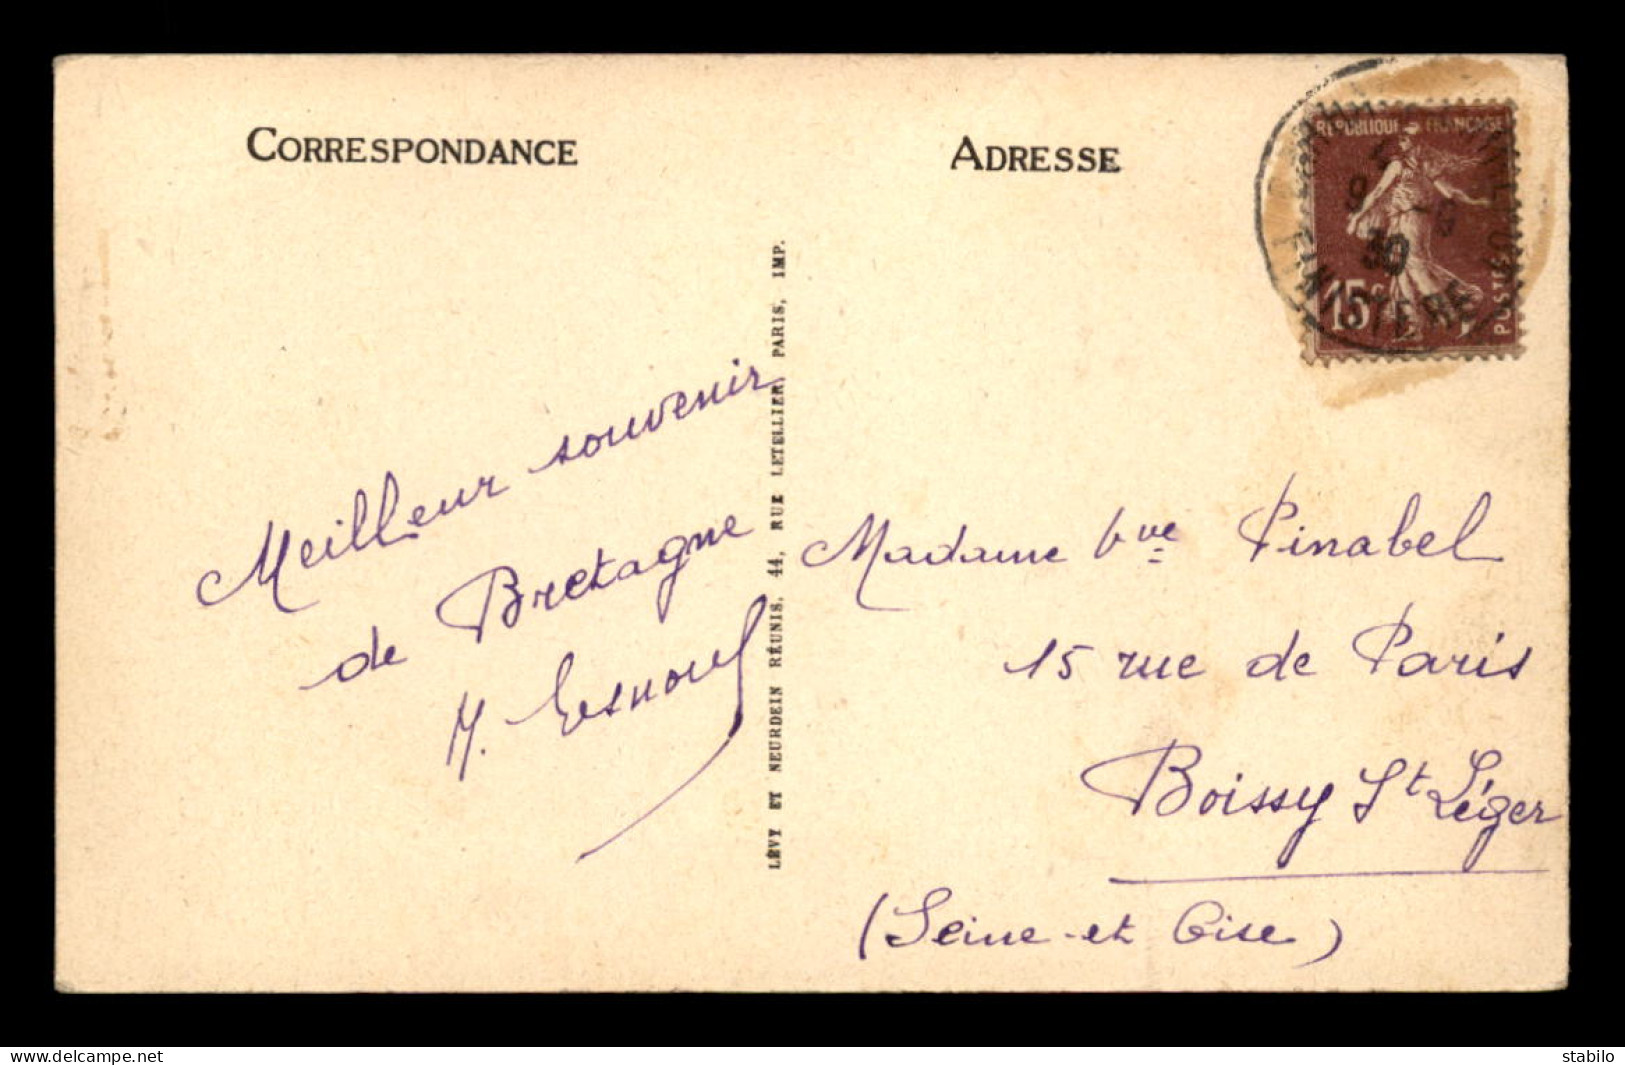 CORRESPONDANCE
Meilleur souvenir
de Bretagne
LÉVY ET NEURDEIN RÉUNIS, 44, RUE LETELLIER, PARIS, IMP.
ADRESSE
REPUBLIQUE FRANÇAISE
15c
POSTES
30
FINISTERE
Madame Vve Pinabel
15 rue de Paris
Boissy St Léger
(Seine et Oise)
delcampe.net
stabilo